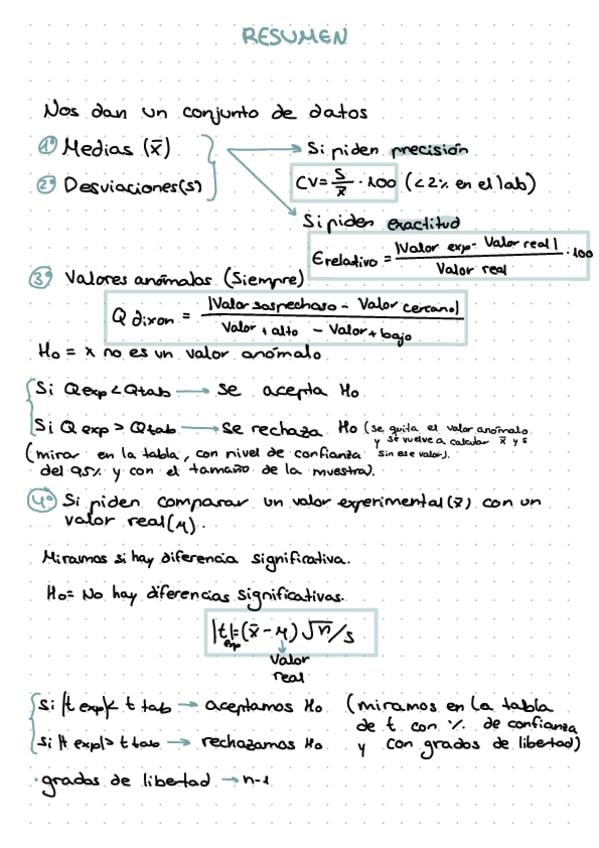 RESUMEN
Nos dan un conjunto de datos
1º Medias (x̄)
2º Desviaciones(s)
Si piden precisión
CV = s/x̄ · 100 (<2% en el lab)
Si piden exactitud
Erelativo = |Valor exp - Valor real| / Valor real · 100
3º Valores anómalos (Siempre)
Q dixon = |Valor sospechoso - Valor cercano| / Valor + alto - Valor + bajo
H₀ = x no es un valor anómalo
Si Q exp < Q tab → se acepta H₀
Si Q exp > Q tab → se rechaza H₀ (se quita el valor anómalo
y se vuelve a calcular x̄ y s
sin ese valor).
(mirar en la tabla, con nivel de confianza
del 95% y con el tamaño de la muestra).
4º Si piden comparar un valor experimental (x̄) con un
valor real (μ).
Miramos si hay diferencia significativa.
H₀ = No hay diferencias significativas.
|t|exp = (x̄ - μ) √n / s
Valor
real
si |t exp| < t tab → aceptamos H₀ (miramos en la tabla
de t con % de confianza
si |t exp| > t tab → rechazamos H₀ y con grados de libertad)
· grados de libertad → n-1